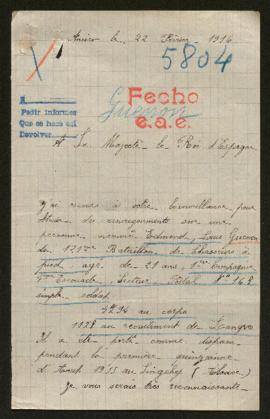 le 22 Février 1916
5804
Fecho
e.a.e.
Guenon
A
Pedir informes
Que se hace así
Devolver
A Sa Majesté le Roi d'Espagne
J'ai recours à votre bienveillance pour
des renseignements sur une
personne nommée Edmond, Louis Guenon
du 121me Bataillon de Chasseurs à
pied agé de 21 ans, 1re Compagnie
Escouade, Secteur Postal No 162
simple soldat
au corps
1128 au recrutement de Langres
Il a été porté comme disparu
pendant la première quinzaine
de 1915 au Lingekopf (Alsace)
Je vous serais très reconnaissante